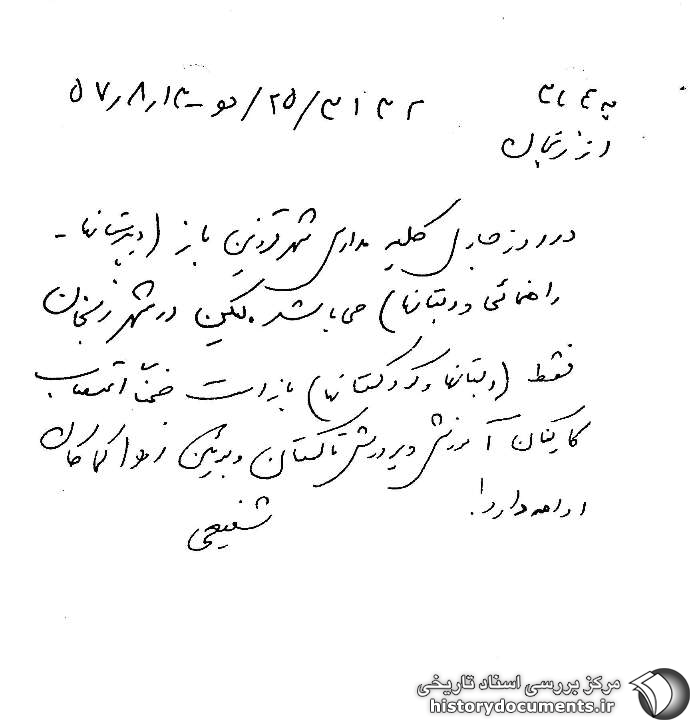 به ۳۴۱
از زنجان
۳۱۳۲ / ۲۵ / هو - ۱۳ر۸ر۵۷
در روز جاری کلیه مدارس شهر قزوین باز (دبیرستانها -
راهنمائی و دبستانها) می باشد. لکن در شهر زنجان
فقط (دبستانها و کودکستانها) باز است ضمناً اعتصاب
کارکنان آموزش و پرورش تاکستان و بوئین زهرا کماکان
ادامه دارد.
شفیعی
مرکز بررسی اسناد تاریخی
historydocuments.ir